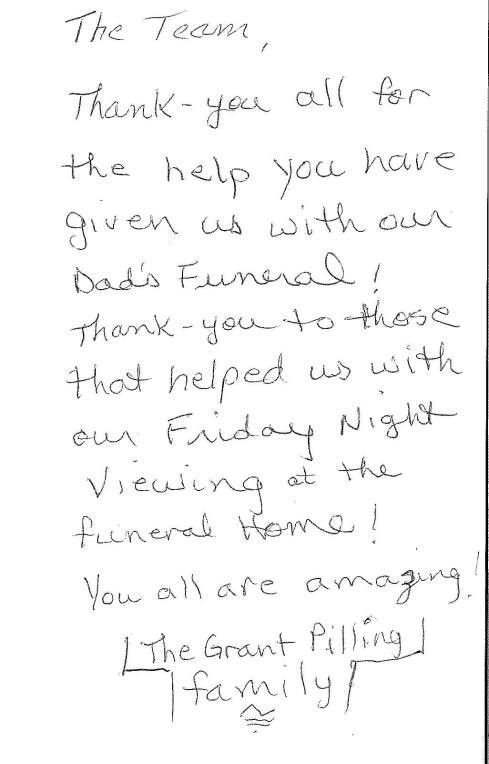 The Team,
Thank-you all for
the help you have
given us with our
Dad's Funeral!
Thank-you to those
that helped us with
our Friday Night
Viewing at the
funeral Home!
You all are amazing!
The Grant Pilling
family